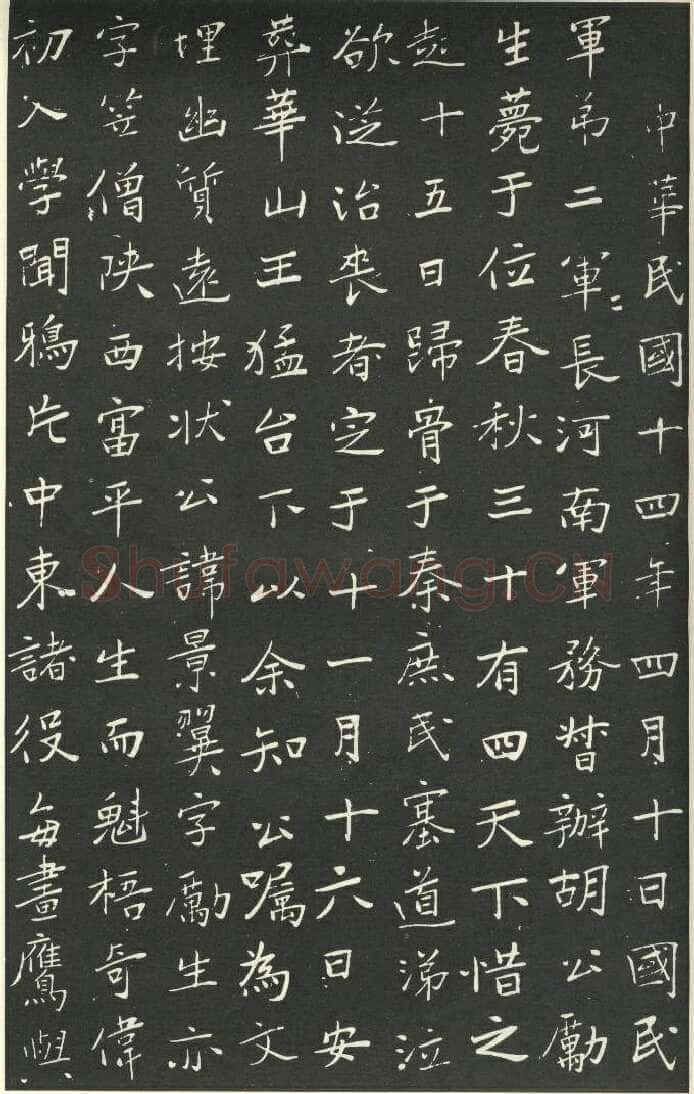 中華民國十四年四月十日國民
軍弟二軍〻長河南軍務督辦胡公勵
生薨于位春秋三十有四天下惜之
越十五日歸骨于秦庶民塞道涕泣
欲從治喪者定于十一月十六日安
葬華山王猛台下以余知公嘱為文
埋幽質遠按状公諱景翼字勵生亦
字笠僧陝西富平人生而魁梧奇偉
初入學聞鴉片中東諸役每畫鷹與
Shufawang.CN